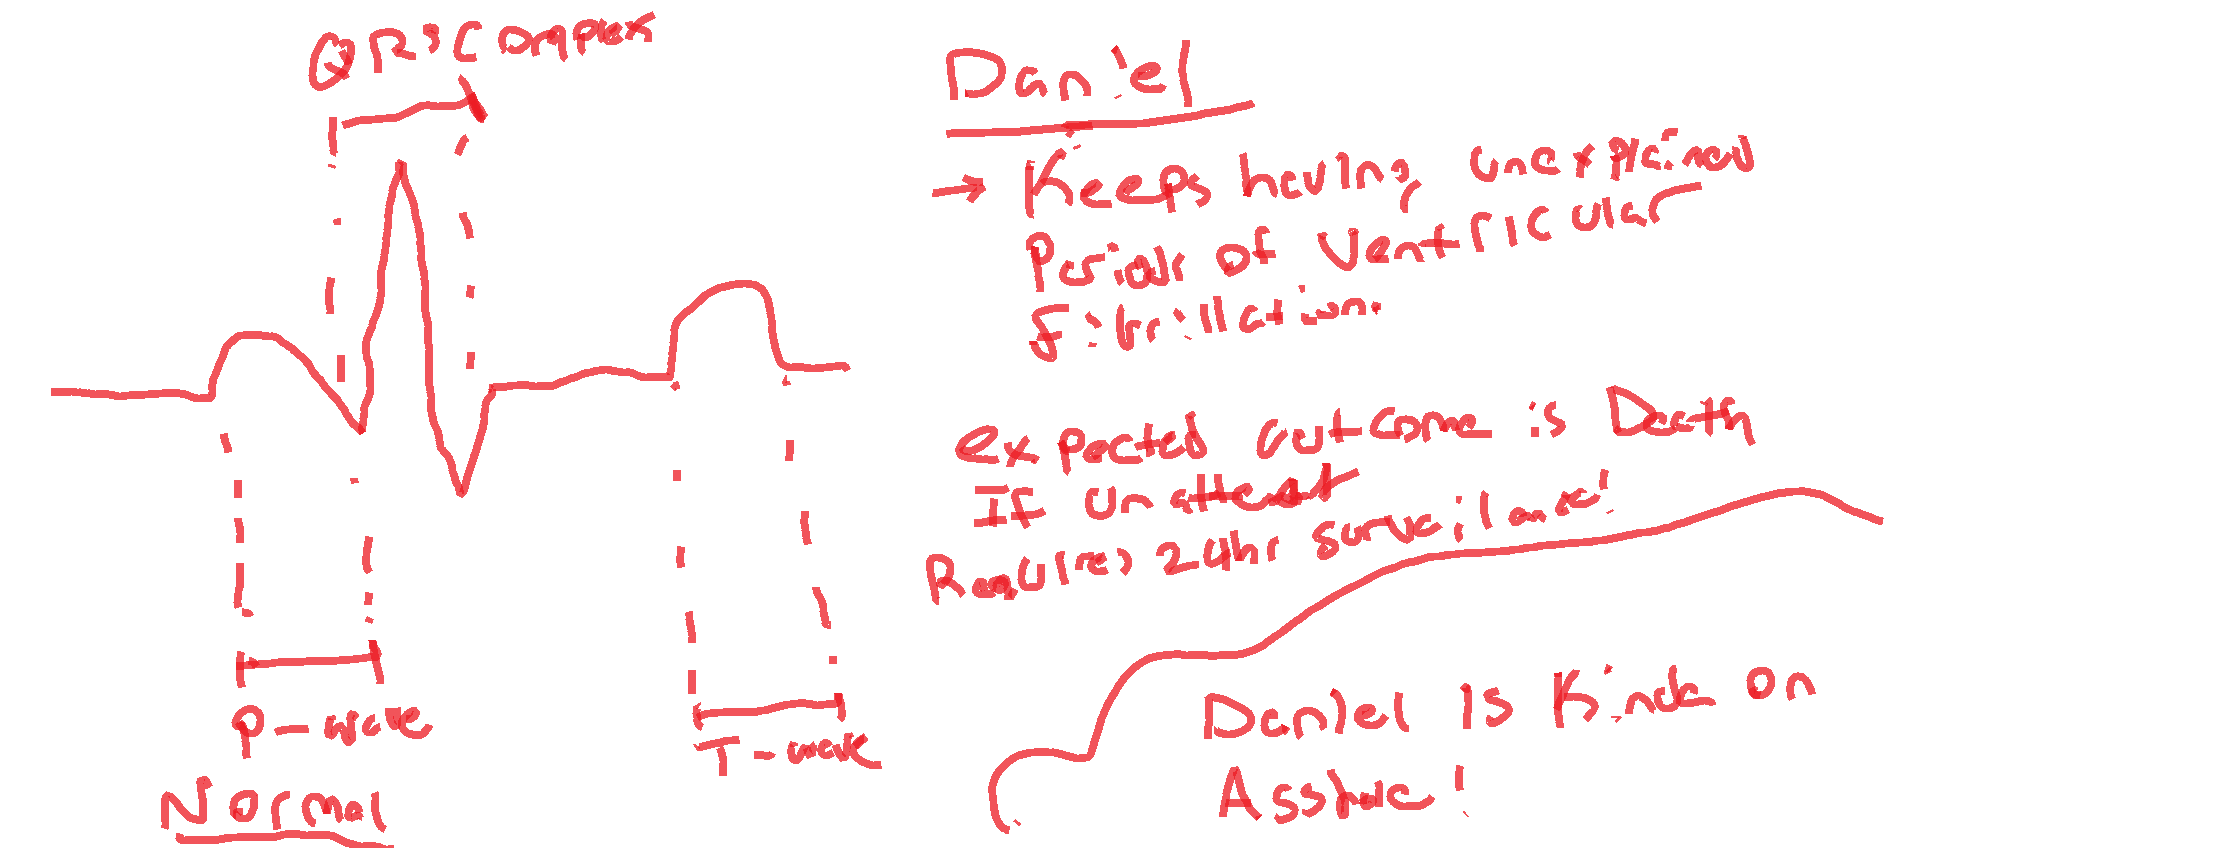 QRS Complex
P-wave
T-wave
Normal
Daniel
→ Keeps having unexplained
Periods of ventricular
fibrillation.
expected outcome is Death
If unattent
Requires 24hr surveilance!
Daniel is Kinda on
Asshole!